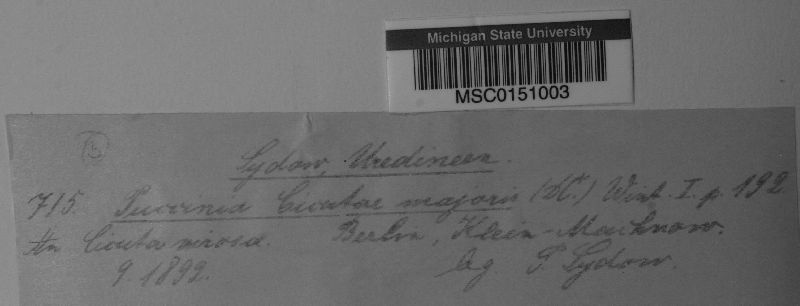 Michigan State University
MSC0151003
Sydow, Uredineen.
715. Puccinia Cicutae majoris (DC.) Wint. I. p. 192
An Cicuta virosa. Berlin, Klein-Machnow.
9. 1892. leg P. Sydow.